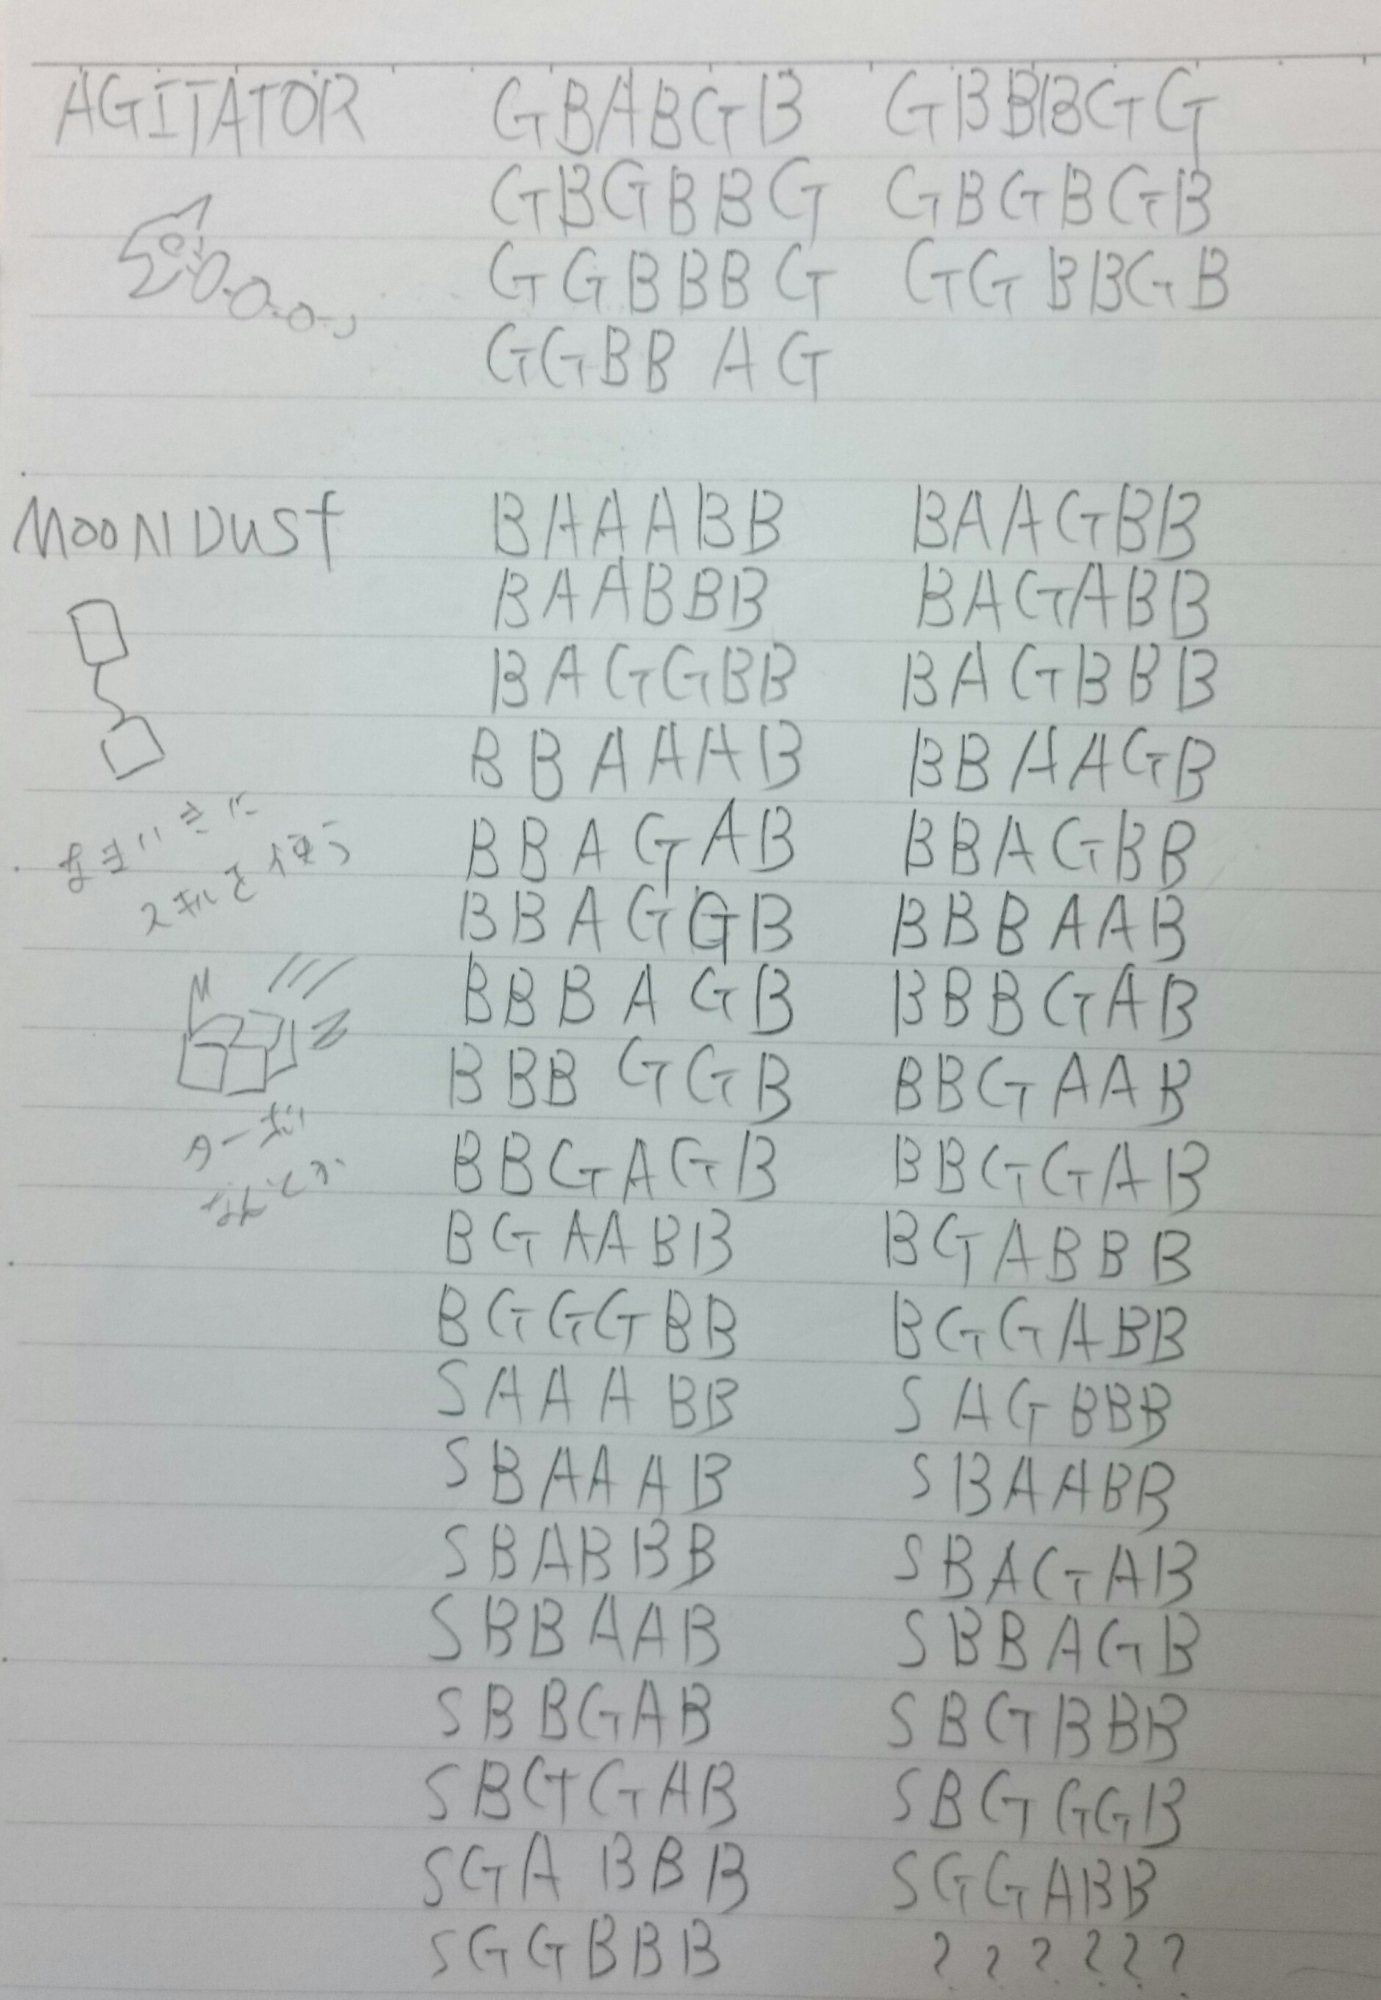 AGITATOR GBABGB GBBBGG
GBGBBG GBGBGB
GGBBBG GGBBGB
GGBB AG
MOON DUST BAAABB BAAGBB
BAABBB BAGABB
BAGGBB BAGBBB
BBAAAB BBAAGB
BBAGAB BBAGBB
スキルを使う
BBAGGB BBBAAB
BBBAGB BBBGAB
BBBGGB BBGAAB
ターボ
BBGAGB BBGGAB
なんとか
BGAABB BGABBB
BGGGBB BGGABB
SAAABB SAGBBB
SBAAAB SBAABB
SBABBB SBAGAB
SBBAAB SBBAGB
SBBGAB SBGBBB
SBGGAB SBGGGB
SGABBB SGGABB
SGGBBB ??????